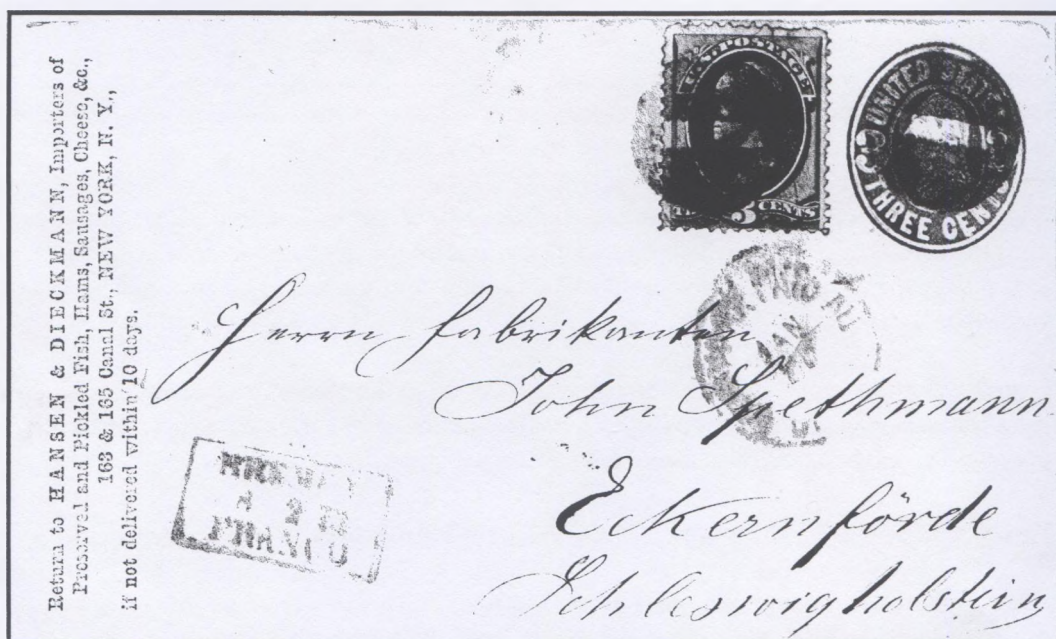 Return to HANSEN & DIECKMANN, Importers of
Preserved and Pickled Fish, Hams, Sausages, Cheese, &c.,
163 & 165 Canal St., NEW YORK, N. Y.,
if not delivered within 10 days.
U.S. POSTAGE
3 CENTS
UNITED STATES
THREE CENTS
PAID ALL
JAN
Herrn Fabrikanten
John Spethmann
Eckernförde
Schleswigholstein
FRANCO